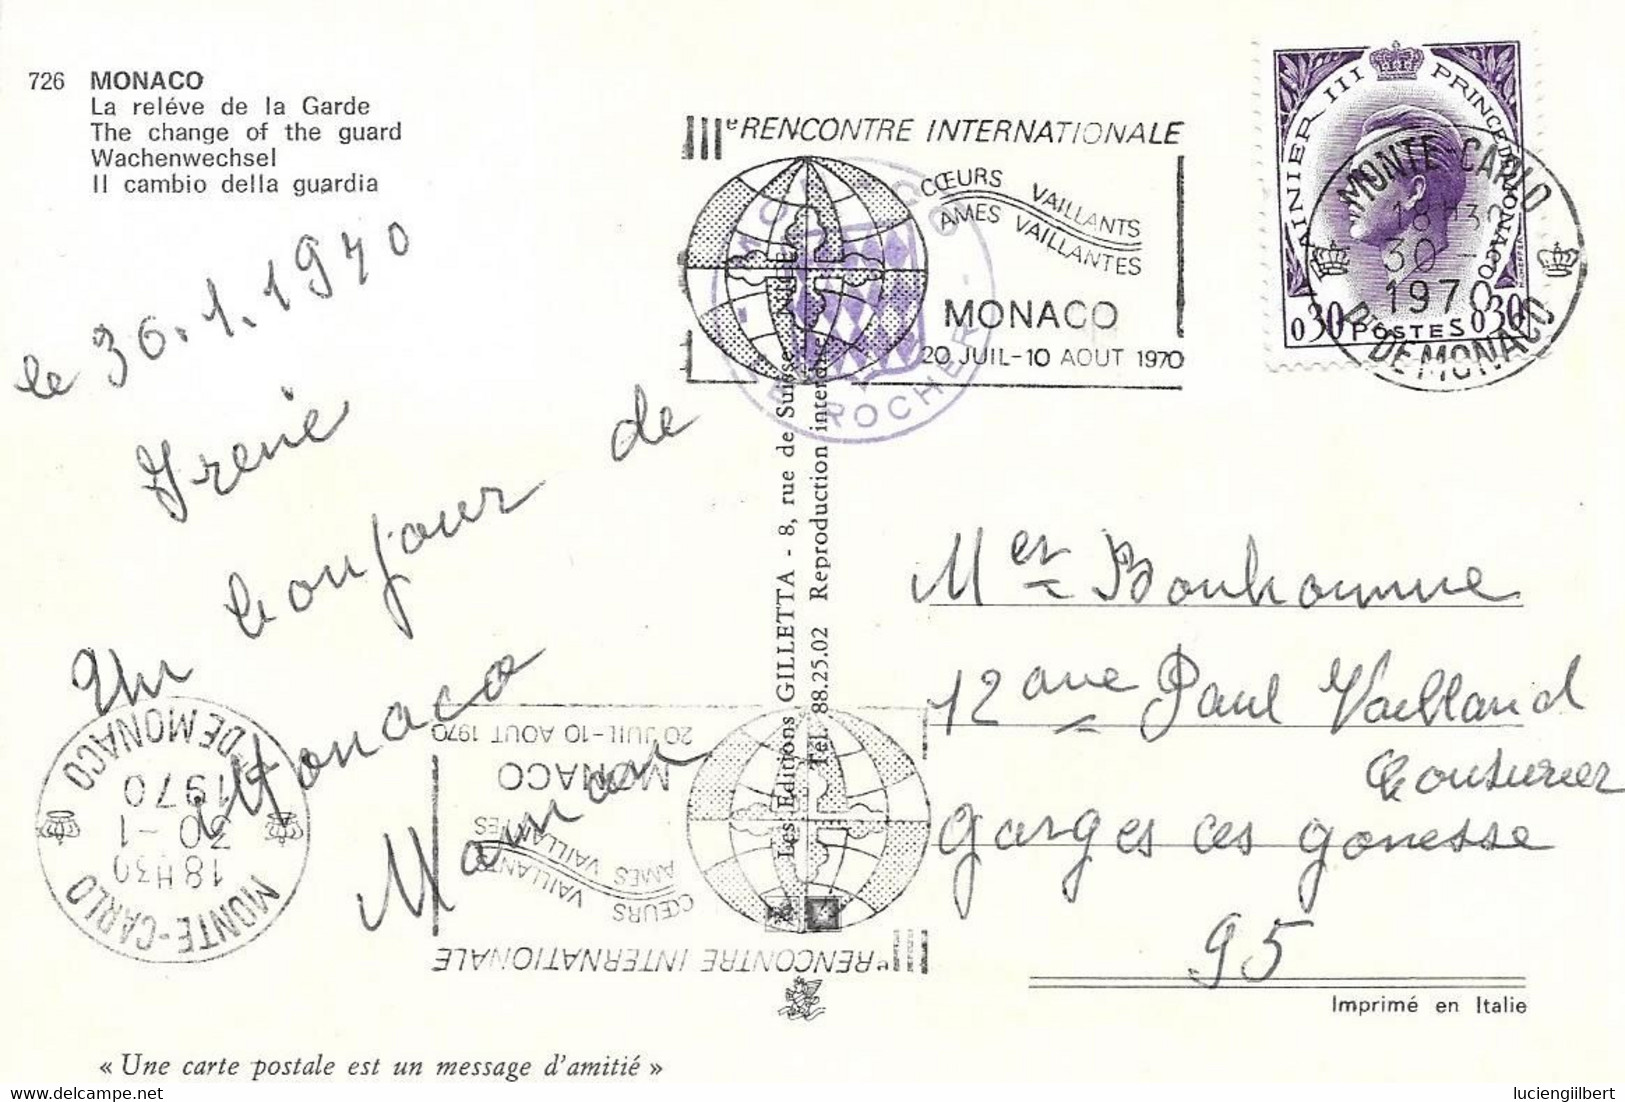 726 MONACO
La reléve de la Garde
The change of the guard
Wachenwechsel
Il cambio della guardia
le 30.1.1970
Irenie
Un bonjour de
Monaco
Maman
IIIe RENCONTRE INTERNATIONALE
CŒURS VAILLANTS
AMES VAILLANTES
MONACO
20 JUIL-10 AOUT 1970
ROCHER
RAINIER III PRINCE DE MONACO
0,30 POSTES 0,30
MONTE-CARLO
18H30
30-1
1970
PTÉ DE MONACO
Les Editions GILLETTA - 8, rue de Suisse
Tél. 88.25.02 Reproduction interdite
Mer Bonhomme
12 ave Paul Vailland
Couturier
Garges les gonesse
95
Imprimé en Italie
IIIe RENCONTRE INTERNATIONALE
CŒURS VAILLANTS
AMES VAILLANTES
MONACO
20 JUIL-10 AOUT 1970
MONTE-CARLO
18H30
30-1
1970
PTÉ DE MONACO
« Une carte postale est un message d'amitié »
luciengilbert